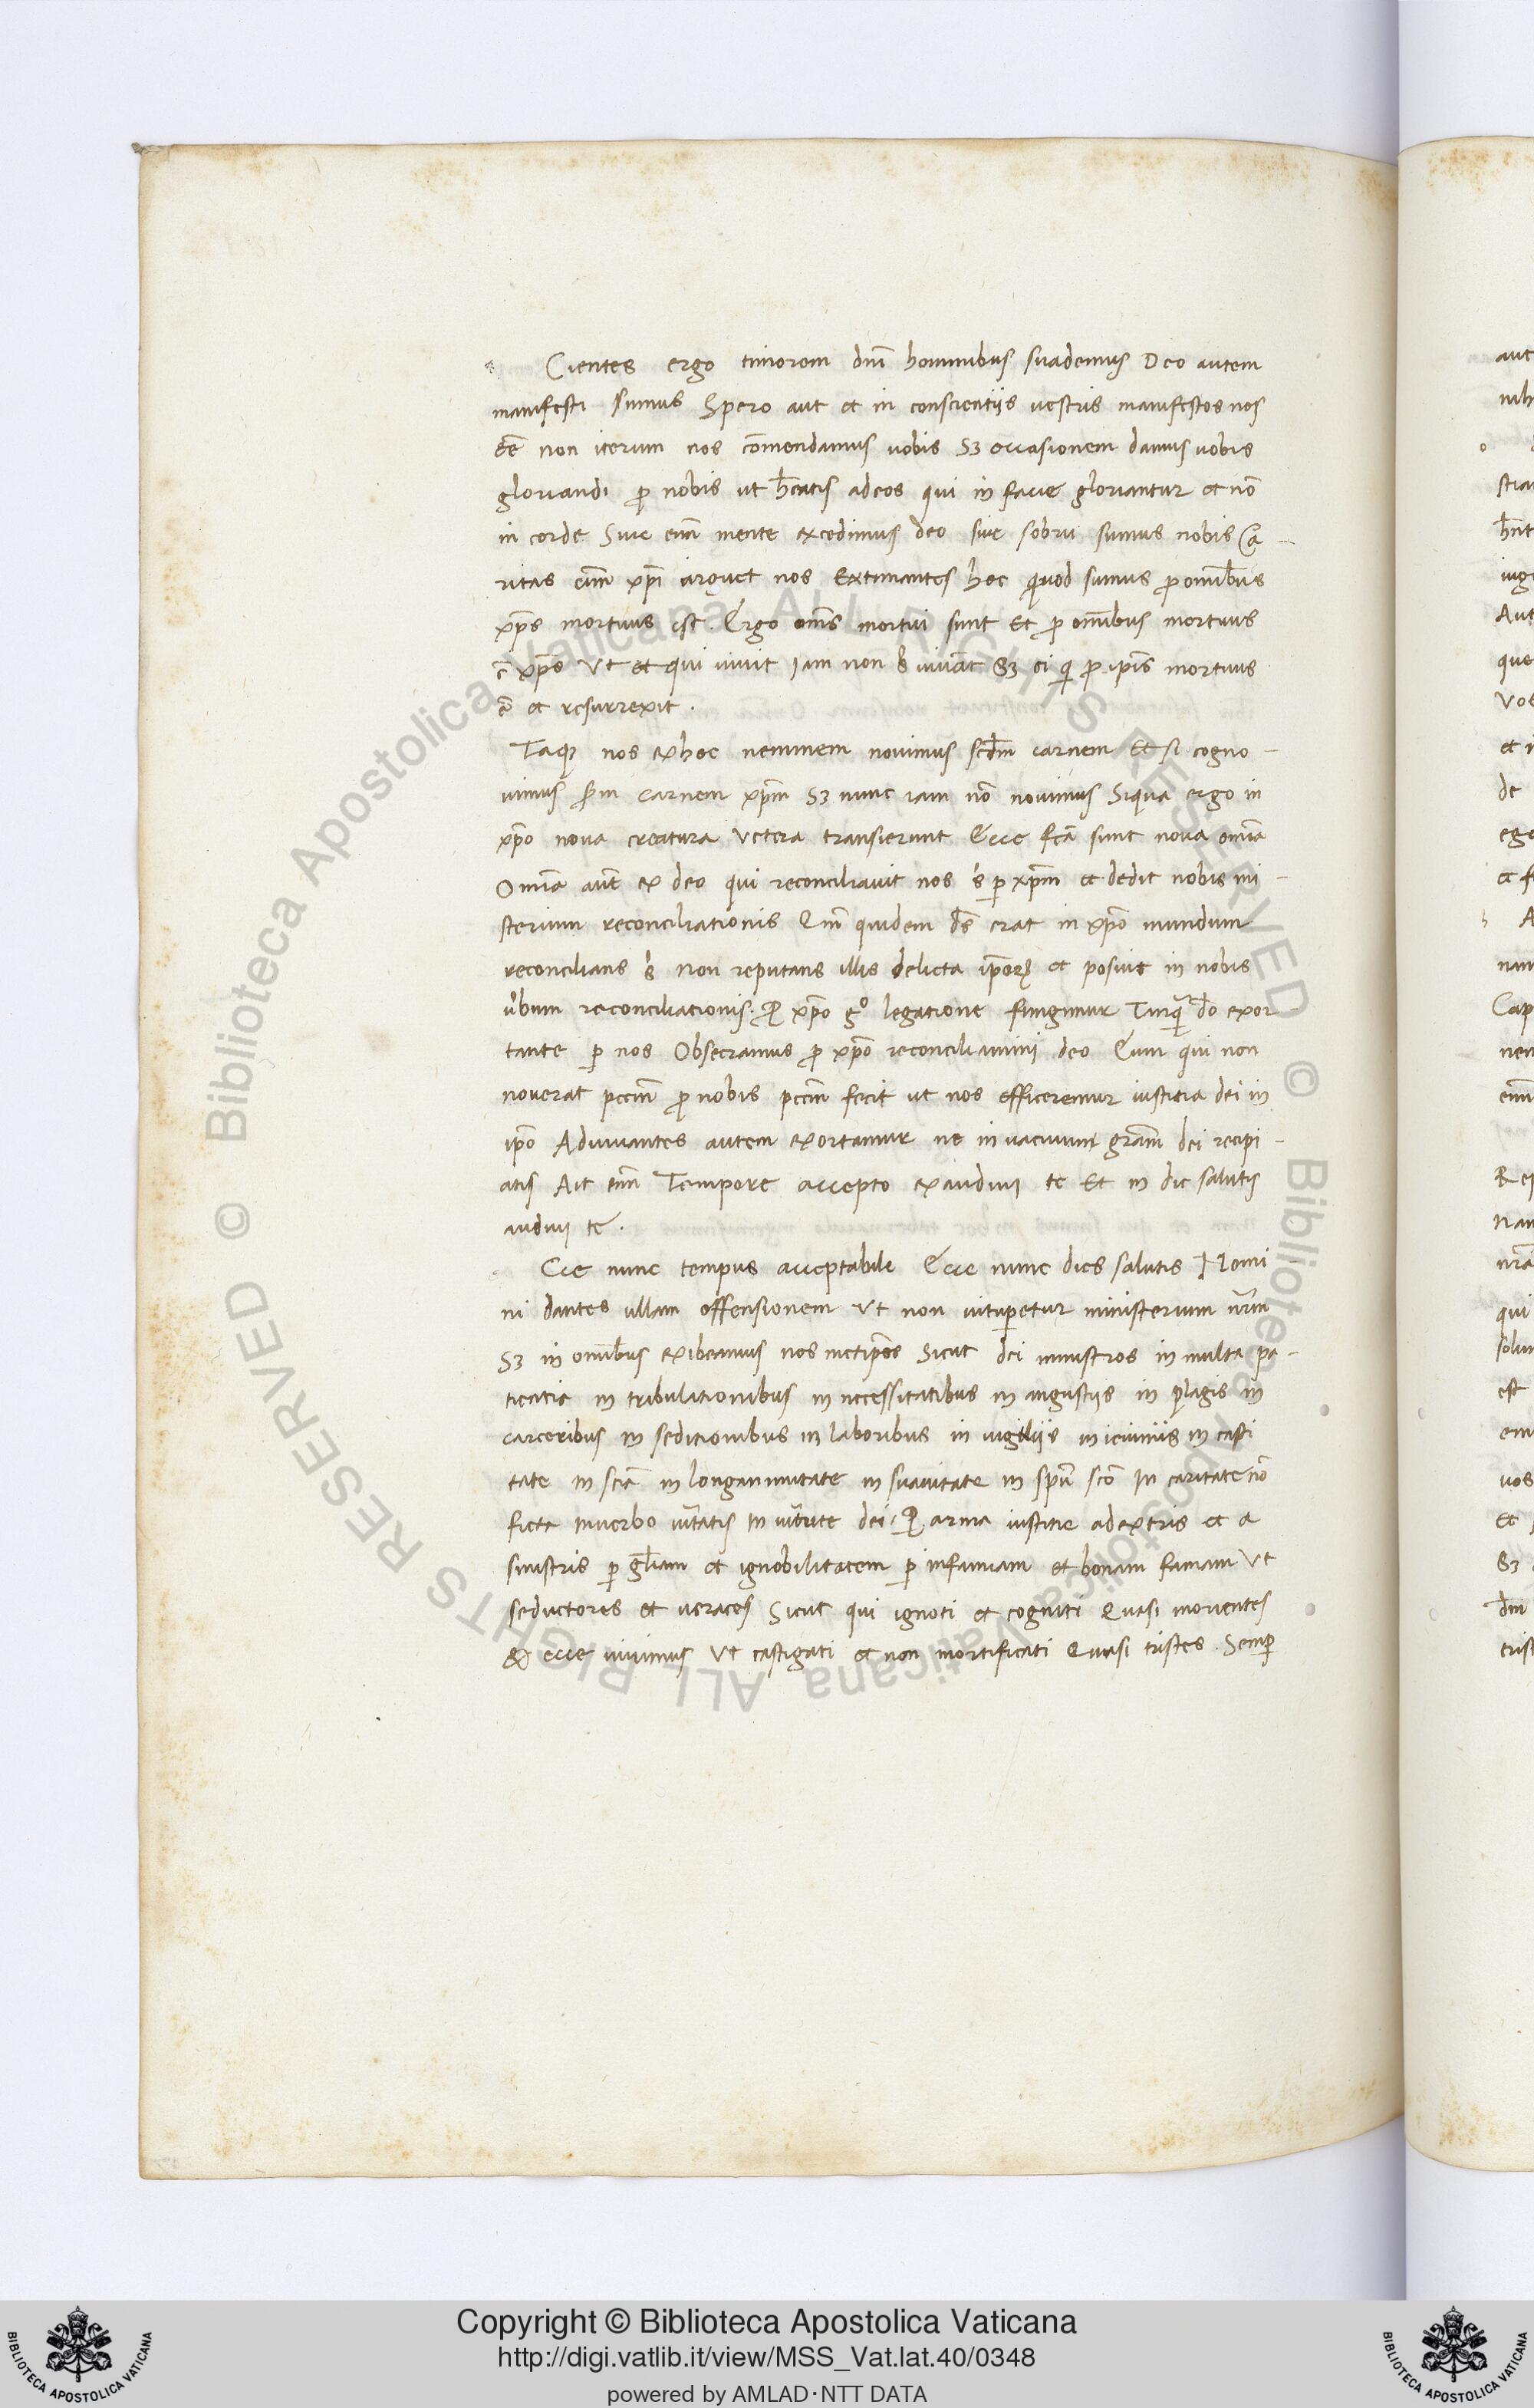 Cientes ergo timorem dnī hominibus suademus Deo autem
manifesti sumus Spero aut et in conscientijs vestris manifestos nos
eē non iterum nos cōmendamus uobis Sꝫ occasionem damus uobis
gloriandi ꝓ nobis ut hēatis adeos qui in facie gloriantur et nō
in corde Siue enī mente excedimus deo siue sobrii sumus nobis Ca-
ritas enī xpī urguet nos Extimantes hoc quod sumus ꝓ omībus
xp̄s mortuus est. Ergo oms̄ mortui sunt Et ꝓ omībus mortuus
ē xp̄s Ut et qui uiuit iam non s̄ uiuāt Sꝫ ei qi ꝓ ip̄is mortuus
ē et resurrexit.
Taqꝫ nos exhoc neminem nouimus scdm̄ carnem Et si cogno-
uimus scdm̄ carnem xp̄m Sꝫ nunc iam nō nouimus Siqua ergo in
xp̄o noua creatura Vetera transierunt Ecce fcā sunt noua omīa
Omīa aūt ex deo qui reconciliauit nos s̓ ꝑ xp̄m et dedit nobis mi-
sterium reconciliationis Qm̄ quidem ds̄ erat in xp̄o mundum
reconcilians s̓ Non reputans illis delicta ip̄oꝝ et posuit in nobis
u̓bum reconciliationis. ꝓ xp̄o gͦ legatione fungimur Tanqͣ do exor-
tante ꝑ nos Obsecramus ꝓ xp̄o reconciliamini deo Eum qui non
nouerat pccm̄ ꝓ nobis pccm̄ fecit ut nos efficeremur iustitia dei in
ip̄o Adiuuantes autem exortamur ne in uacuum gram̄ dei recipi-
atis Ait enī Tempore accepto exaudiui te Et in die salutis
audiui te.
Cce nunc tempus acceptabile Ecce nunc dies salutis Nemi
ni dantes ullam offensionem Ut non uituꝑetur ministerium nrm̄
Sꝫ in omībus exibeamus nos metip̄os Sicut dei ministros in multa pa-
tientia in tribulationibus in necessitatibus in angustijs in plagis in
carceribus in seditionibus in laboribus in uigilijs in ieiuniis in casti
tate in sciā in longanimitate in suauitate in spū scō In caritate nō
ficta Inuerbo u̓itatis In uirtute dei ꝑ arma iustitie adextris et a
sinistris ꝑ gl̄iam et ignobilitatem ꝑ infamiam et bonam famam Ut
seductores et ueraces Sicut qui ignoti et cogniti Quasi morientes
& ecce uiuimus Ut castigati et non mortificati Quasi tristes. Semꝑ
Copyright © Biblioteca Apostolica Vaticana
http://digi.vatlib.it/view/MSS_Vat.lat.40/0348
powered by AMLAD·NTT DATA